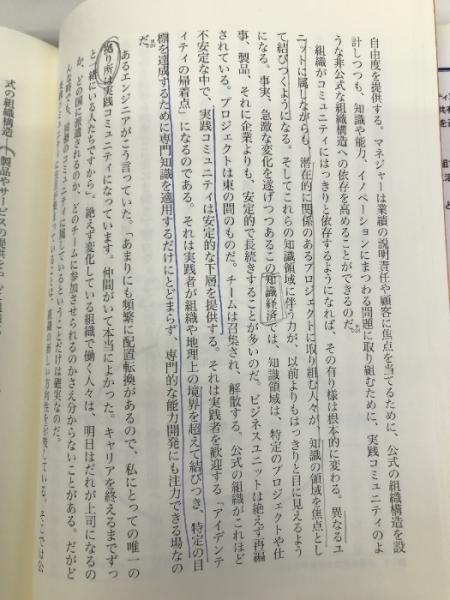 自由度を提供する。マネジャーは業績の説明責任や顧客に焦点を当てるために、公式の組織構造を設
計しつつも、知識や能力、イノベーションにまつわる問題に取り組むために、実践コミュニティのよ
うな非公式な組織構造への依存を高めることができるのだ。
組織がコミュニティにはっきりと依存するようになれば、その有り様は根本的に変わる。異なるユ
ニットに属しながらも、潜在的に関係のあるプロジェクトに取り組む人々が、知識の領域を焦点とし
て結びつくようになる。そしてこれらの知識領域に伴う力が、以前よりもはっきりと目に見えるよう
になる。事実、急激な変化を遂げつつあるこの知識経済では、知識領域は、特定のプロジェクトや仕
事、製品、それに企業よりも、安定的で長続きすることが多いのだ。ビジネスユニットは絶えず再編
されている。プロジェクトは束の間のものだ。チームは召集され、解散する。公式の組織がこれほど
不安定な中で、実践コミュニティは安定的な下層を提供する。それは実践者を歓迎する「アイデンテ
ィティの帰着点」になるのである。それは実践者が組織や地理上の境界を超えて結びつき、特定の目
標を達成するために専門知識を適用するだけにとどまらず、専門的な能力開発にも注力できる場なの
だ。
あるエンジニアがこう言っていた。「あまりにも頻繁に配置転換があるので、私にとっての唯一の
拠り所は実践コミュニティになっています。仲間がいて本当によかった。キャリアを終えるまでずっ
と一緒にいる人たちですから」。絶えず変化している組織で働く人々は、明日はだれが上司になるの
か、どの国に派遣されるのか、どのチームに参加させられるのかさえ分からないことがある。だがど
のコミュニティに属しているということだけは確実なのだ。
組織の新しい方向性を示唆している。そこでは公
式の組織構造